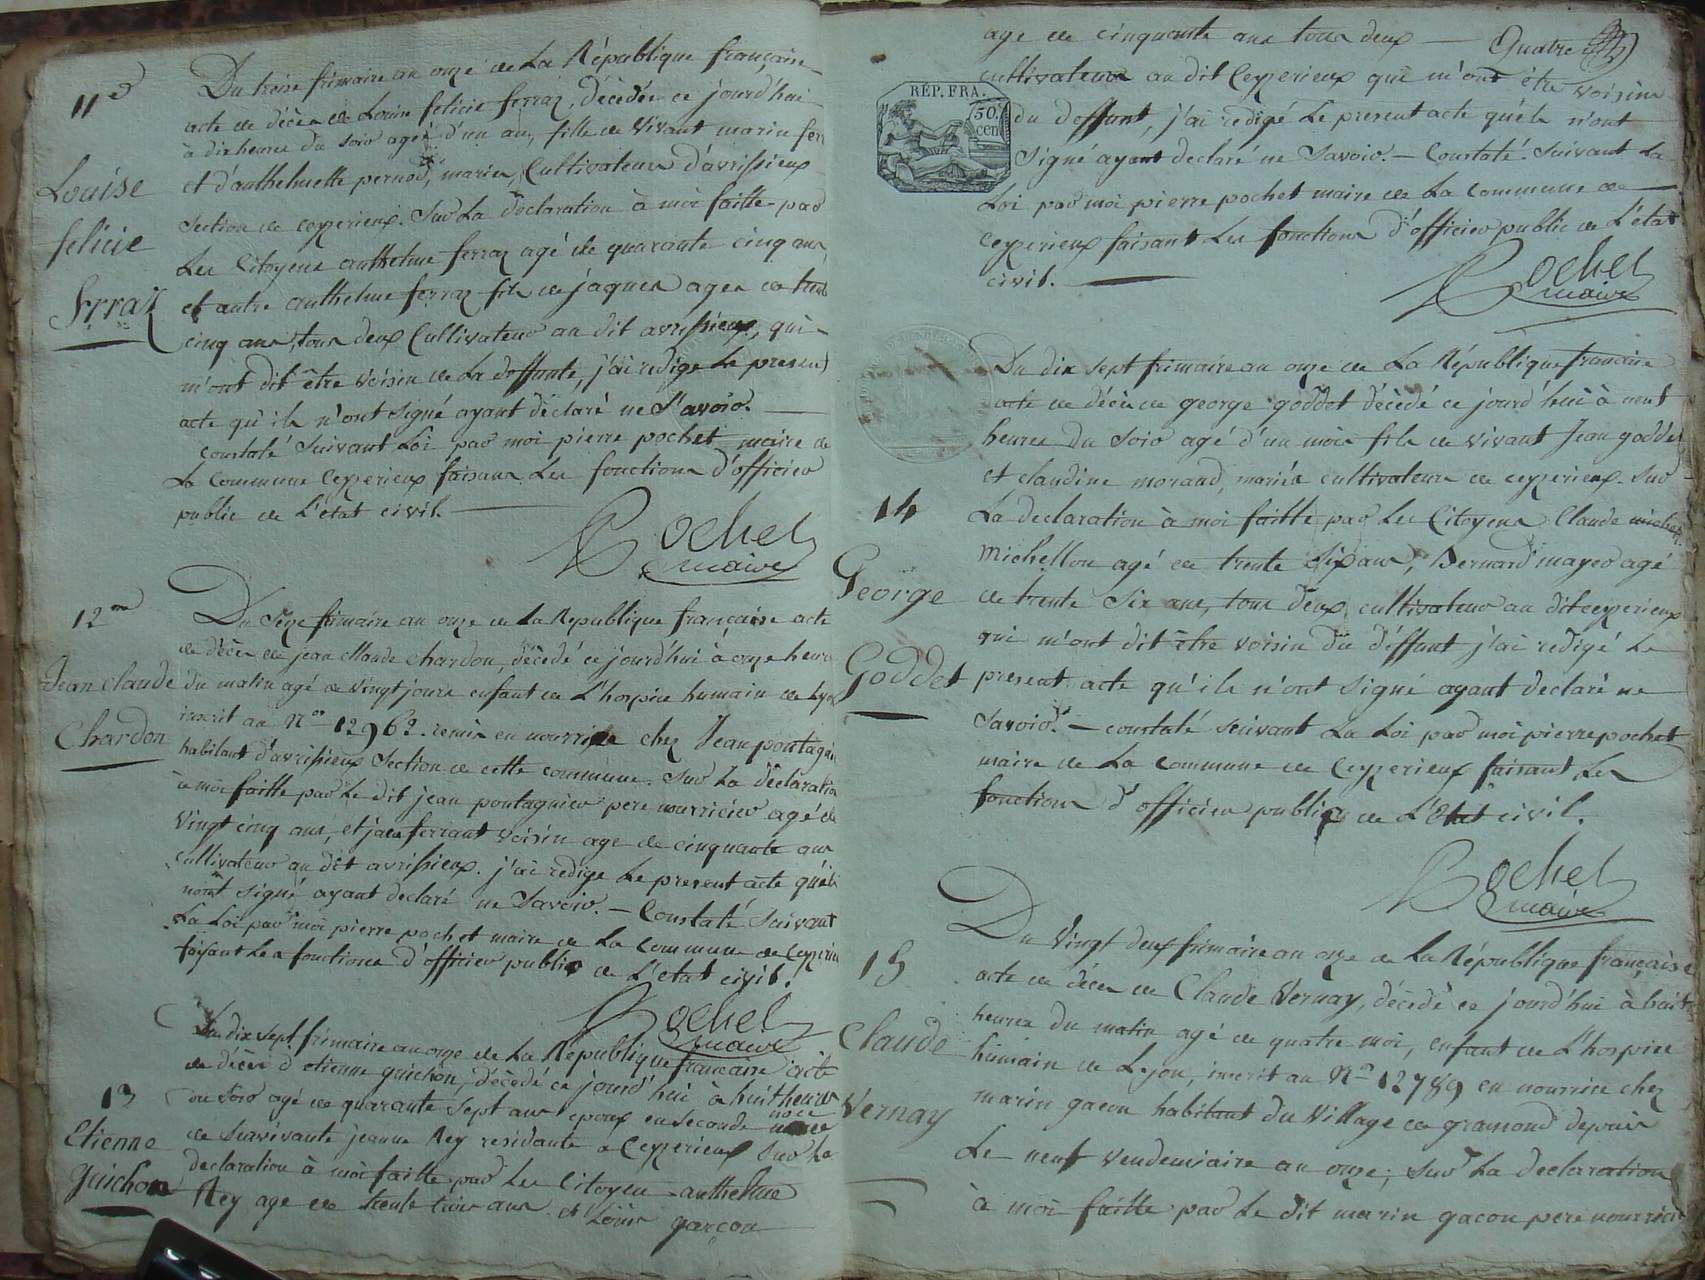 11e
Louise
felicie
ferraz
Du trois frimaire an onze de La République française
acte de décès de Louise felicie ferraz, décédée ce jourd'hui
à dix heures du soir agée d'un an, fille de Vivant marin fer
et d'anthelmette pernod, mariés, Cultivateurs d'avrissieux
section de ceyzerieux. Sur La déclaration à moi faitte par
Les Citoyens anthelme ferraz agé de quarante cinq ans
et autre anthelme ferraz fils de jaques agés de trente
cinq ans, tous deux Cultivateur au dit avrissieux, qui
m'ont dit être voisin de La deffunte, j'ai redigé Le present
acte qu'ils n'ont signé ayant déclaré ne Savoir.
constaté suivant Loi par moi pierre pochet maire de
La Commune Ceyzerieux faisant Les fonctions d'officier
public de L'état civil.
Pochet
maire
12me
Jean Claude
Chardon
Du Seize frimaire an onze de La République française acte
de décès de jean Claude chardon, décédé ce jourd'hui à onze heures
du matin agé de vingt jours enfant de L'hospice humain de Lyon
inscrit au Nos 12962. remis en nourrice chez Jean pontagnier
habitant d'avrissieux Section de cette commune. Sur La déclaration
à moi faitte par Le dit jean pontagnier pere nourricier agé de
Vingt cinq ans, et ferraut voisin age de cinquante ans
cultivateur au dit avrissieux. j'ai redigé Le present acte qu'ils
n'ont signé ayant declaré ne Savoir. — Constaté Suivant
La Loi par moi pierre pochet maire de La commune de Ceyzerieu
faisant Les fonctions d'officier public de L'etat civil.
Pochet
maire
13
Etienne
guichon
Du dix sept frimaire an onze de La République francaise acte
de décès d'etienne guichon, décédé ce jourd'hui à huit heures
du soir agé de quarante sept ans epoux en seconde noce
de Survivante jeanne Rey residante a Ceyzerieux Sur La
declaration à moi faitte par Les Citoyen anthelme
Rey age de trente trois ans et Louis garçon
age de cinquante ans tous deux — Quatre
cultivateurs au dit Ceyzerieux qui m'ont été voisins
RÉP. FRA.
50.
cen
du deffunt, j'ai redigé Le present acte qu'ils n'ont
Signé ayant declaré ne Savoir. — Constaté. Suivant La
Loi par moi pierre pochet maire de La commune de
Ceyzerieux faisant Les fonctions d'officier public de L'état
civil.
Pochet
maire
14
George
Goddet
Du dix sept frimaire an onze de La République francaise
acte de décès de george goddet décédé ce jourd'hui à neuf
heures du Soir agé d'un mois fils de vivant Jean goddet
et claudine moraud, mariés cultivateurs de ceyzerieux. Sur
La declaration à moi faitte par Les Citoyens Claude
Michellon agé de trente Six ans, Bernard mayer agé
de trente Six ans, tous deux cultivateur au dit ceyzerieux
qui m'ont dit être voisin du deffunt j'ai redigé Le
present acte qu'ils n'ont Signé ayant declaré ne
Savoir. — constaté suivant La Loi par moi pierre pochet
maire de La commune de Ceyzerieux faisant Les
fonctions d'officier public de L'état civil.
Pochet
maire
15
Claude
Vernay
Du Vingt deux frimaire an onze de La République française
acte de décès de Claude Vernay, décédé ce jourd'hui à huit
heures du matin agé de quatre mois, enfant de L'hospice
humain de Lyon, inscrit au No 12789 en nourrice chez
marin gacon habitant du Village de gramond depuis
Le neuf vendemiaire an onze; Sur La declaration
à moi faitte par Le dit marin gacon pere nourricier